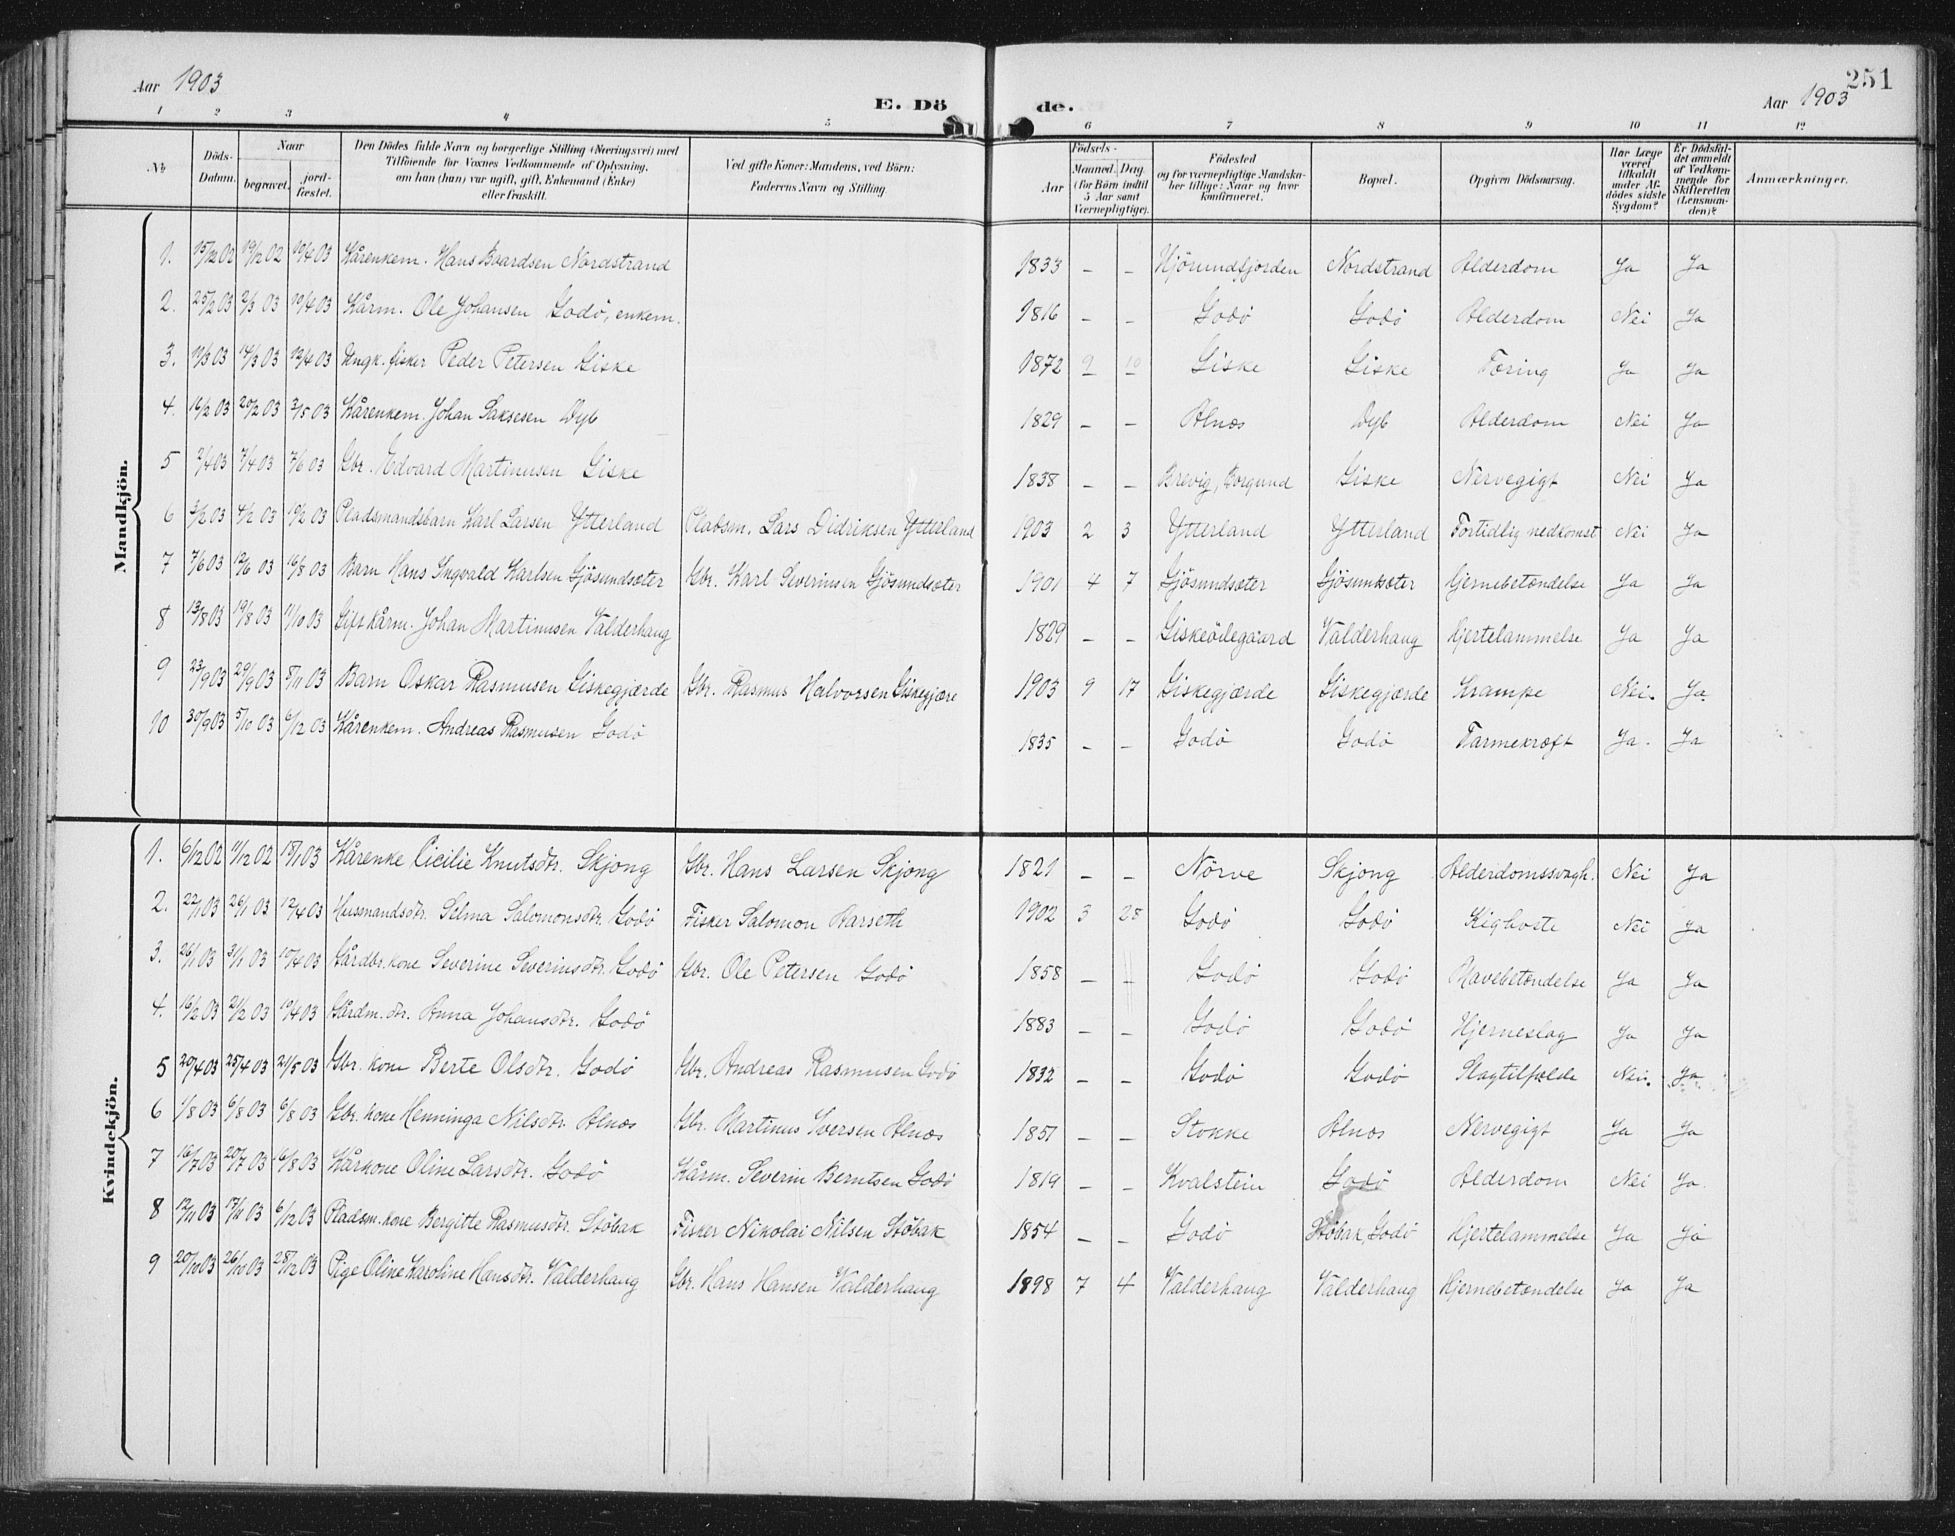 Aar 1903
E. Dö de.
Aar 1903
251
1 2 3 4 5 6 7 8 9 10 11 12
No. | Döds-Datum. | Naar begravet. | jordfæstet. | Den Dödes fulde Navn og borgerlige Stilling (Næringsvei) med Tilföiende for Voxnes Vedkommende af Oplysning, om han (hun) var ugift, gift, Enkemand (Enke) eller fraskilt. | Ved gifte Koner: Mandens, ved Börn: Faderens Navn og Stilling | Födsels- Aar | Maaned. Dag. (for Börn indtil 5 Aar samt Værnepligtige). | Födested og for værnepligtige Mandskaber tillige: Naar og hvor konfirmeret. | Bopæl. | Opgiven Dödsaarsag. | Har Læge været tilkaldt under Afdödes sidste Sygdom? | Er Dödsfaldet anmeldt af Vedkommende for Skifteretten (Lensmanden)? | Anmærkninger.
Mandkjön.
1. 15/12 02 19/12 02 19/4 03 Kårenkem. Hans Baardsen Nordstrand 1833 – – Hjörundfjorden Nordstrand Alderdom Ja Ja
2. 25/2 03 2/3 03 19/4 03 Kårm. Ole Johansen Godö, enkem. 1816 – – Godö Godö Alderdom Nei Ja
3. 11/3 03 14/3 03 13/4 03 Ungk. fisker Peder Petersen Giske 1872 9 10 Giske Giske Tæring Ja Ja
4. 16/2 03 20/2 03 3/5 03 Kårenkem. Johan Saksesen Dyb 1829 – – Alnæs Dyb Alderdom Nei Ja
5 2/4 03 7/4 03 7/6 03 Gbr. Edvard Martinusen Giske 1838 – – Brevig, Borgund Giske Nervegigt Nei Ja
6 3/2 03 4/2 03 19/2 03 Pladsmandsbarn Karl Larsen Ytterland Pladsm. Lars Didriksen Ytterland 1903 2 3 Ytterland Ytterland Fortidlig nedkomst Nei Ja
7 7/6 03 12/6 03 16/8 03 Barn Hans Ingvald Karlsen Gjösundsæter Gbr. Karl Severinsen Gjösundsæter 1901 4 7 Gjösundsæter Gjösundsæter Hjernebetændelse Ja Ja
8 13/8 03 19/8 03 11/10 03 Gift kårm. Johan Martinusen Valderhaug 1829 – – Giskeödegaard Valderhaug Hjertelammelse Ja Ja
9 23/9 03 29/9 03 8/11 03 Barn Oskar Rasmusen Giskegjærde Gbr. Rasmus Halvorsen Giskegjære 1903 9 17 Giskegjærde Giskegjærde Krampe Nei. Ja.
10 30/9 03 5/10 03 6/12 03 Kårenkem. Andreas Rasmusen Godö 1835 – – Godö Godö Tarmekræft Ja. Ja
Kvindekjön.
1. 6/12 02 11/12 02 18/1 03 Kårenke Cicilie Knutsdtr. Skjong Gbr. Hans Larsen Skjong 1821 – – Nörve Skjong Alderdomssvagh. Nei Ja
2. 22/1 03 26/1 03 12/4 03 Husmandsdtr. Selma Salomonsdtr. Godö Fisker Salomon Harseth 1902 3 28 Godö Godö Kighoste Nei Ja
3. 26/1 03 31/1 03 19/4 03 Gårdbr. kone Severine Severinsdtr. Godö Gbr. Ole Petersen Godö 1858 – – Godö Godö Mavebetændelse Ja Ja
4. 16/2 03 21/2 03 19/4 03 Gårdm. dtr. Anna Johansdtr. Godö 1883 – – Godö Godö Hjerneslag Ja Ja
5 20/4 03 25/4 03 21/5 03 Gbr. kone Berte Olsdtr. Godö Gbr. Andreas Rasmusen Godö 1832 – – Godö Godö Slagtilfælde Nei. Ja
6 1/8 03 6/8 03 6/8 03 Gbr. kone Henninga Nilsdtr. Alnæs Gbr. Martinus Iversen Alnæs 1851 – – Stokke Alnæs Nervegigt Ja Ja
7 16/7 03 20/7 03 6/8 03 Kårkone Oline Larsdtr. Godö Kårm. Severin Berntsen Godö 1819 – – Kvalstein Godö Alderdom Nei Ja.
8 12/11 03 17/11 03 6/12 03 Pladsm. kone Bergitte Rasmusdtr. Stöbak Fisker Nikolai Nilsen Stöbak 1854 – – Godö Stöbak, Godö Hjertelammelse Ja Ja
9 20/10 03 26/10 03 28/12 03 Pige Oline Karoline Hansdtr. Valderhaug Gbr. Hans Hansen Valderhaug 1898 7 4 Valderhaug Valderhaug Hjernebetændelse Ja Ja